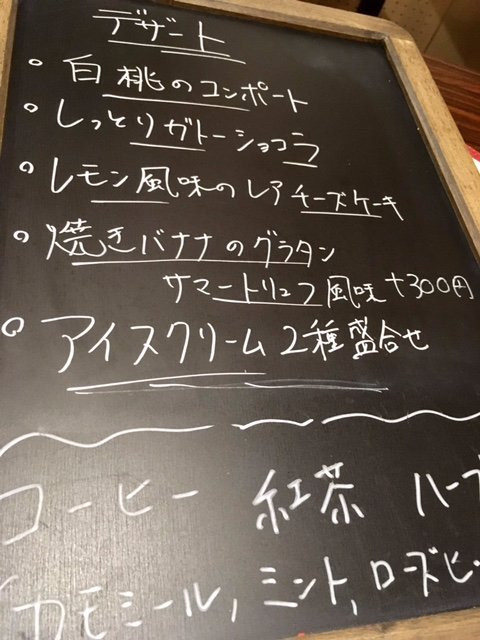 デザート
・白桃のコンポート
・しっとりガトーショコラ
・レモン風味のレアチーズケーキ
・焼きバナナのグラタン
サマートリュフ風味+300円
・アイスクリーム2種盛合せ
コーヒー 紅茶 ハーブ
カモミール,ミント,ローズヒ